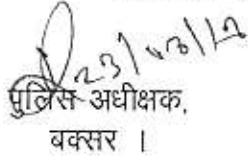 23/03/12
पुलिस अधीक्षक,
बक्सर ।